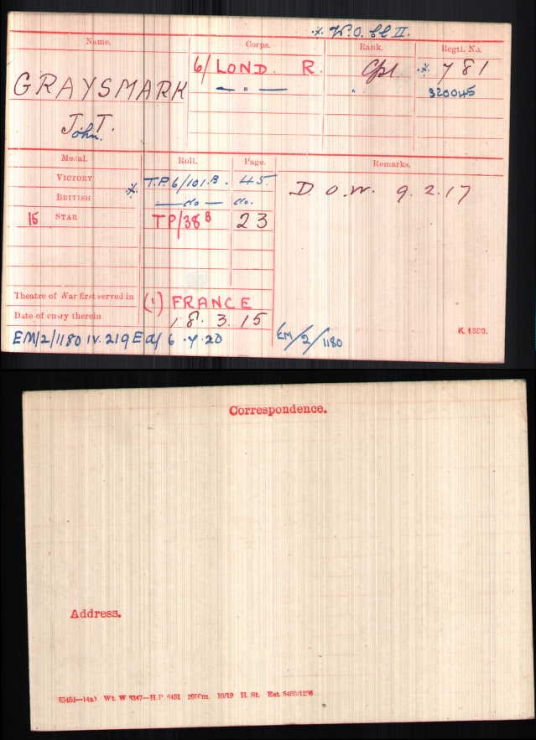 x. W.O. Cl II.
Name. Corps. Rank. Regtl. No.
6/LOND. R. Cpl x. 781
GRAYSMARK — " — " 320045
John T.
Medal. Roll. Page. Remarks.
VICTORY x. T.P. 6/101.B. 45. D.O.W. 9.2.17
BRITISH — do — do.
15 STAR TP/38 B 23
Theatre of War first served in (1) FRANCE
Date of entry therein 18.3.15 K. 1380.
EM/2/1180 IV. 219 Ed/ 6.4.20 EM/2/1180
Correspondence.
Address.